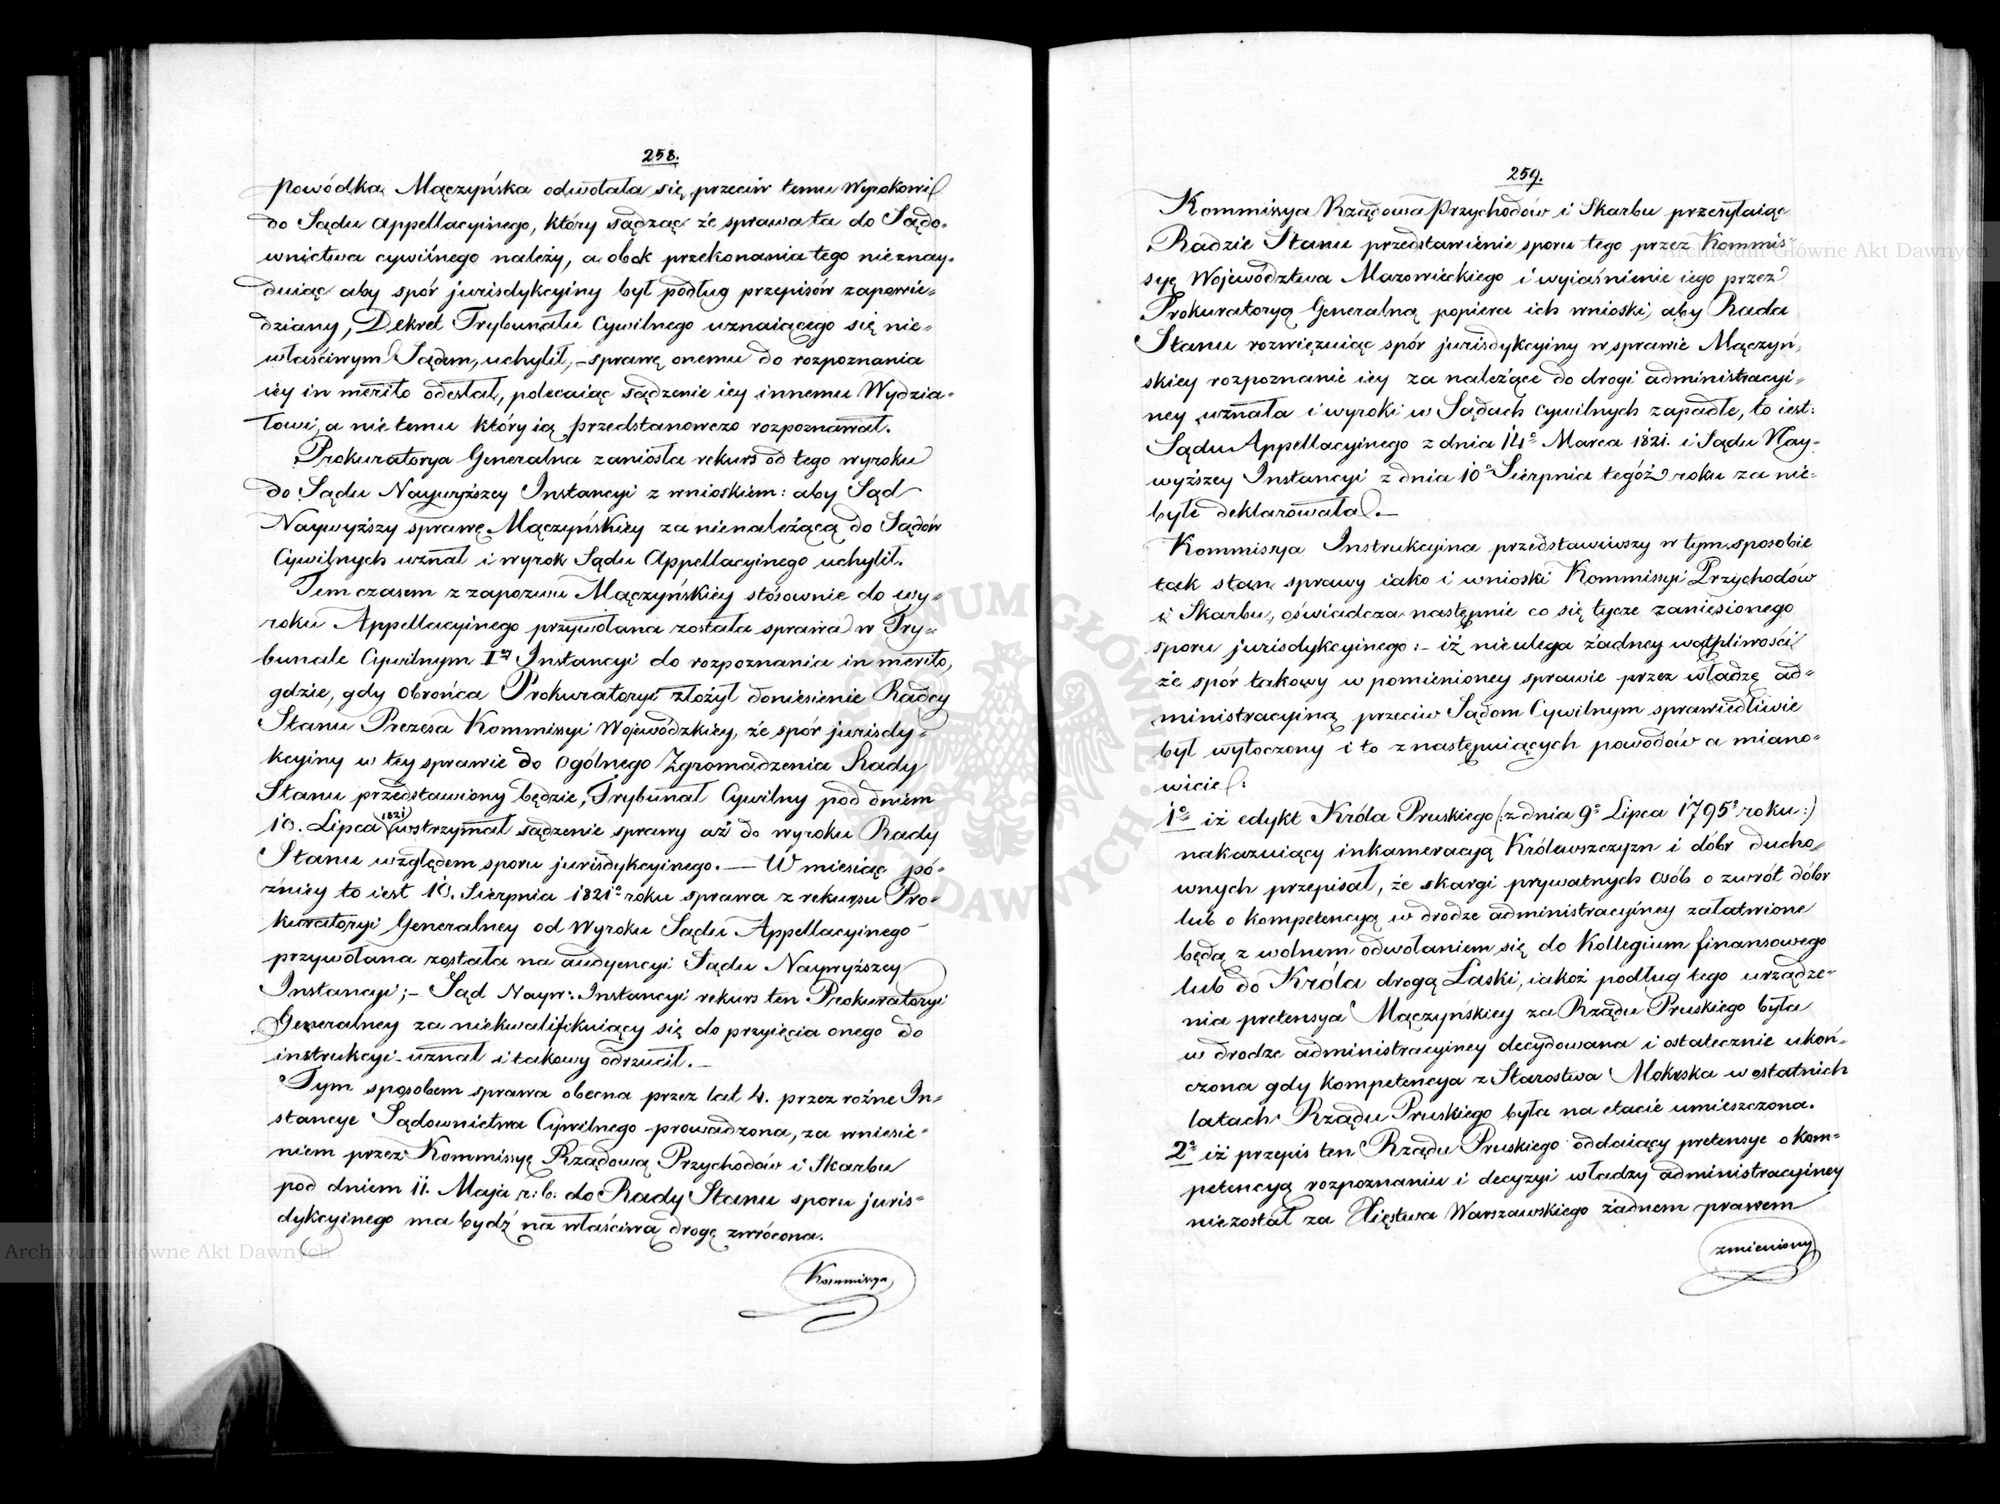 258.
powódka Mączyńska odwołała się przeciw temu Wyrokowi
do Sądu Appellacyinego, który sądząc że sprawa ta do Sądo-
wnictwa cywilnego należy, a obok przekonania tego nieznay-
duiąc aby spór jurisdykcyiny był podług przepisów zapowie-
dziany, Dekret Trybunału Cywilnego uznaiącego się nie-
właściwym Sądem, uchylił, – sprawę onemu do rozpoznania
iéy in merito odesłał, polecaiąc sądzenie iéy innemu Wydzia-
łowi, a nie temu który ią przedstanowczo rozpoznawał.
Prokuratorya Generalna zaniosła rekurs od tego wyroku
do Sądu Naywyższey Instancyi z wnioskiem: aby Sąd
Naywyższy sprawę Mączyńskiey za nienależącą do Sądów
Cywilnych uznał i wyrok Sądu Appellacyinego uchylił.
Tem czasem z zapozwu Mączyńskiey stósownie do wy-
roku Appellacyinego przywołana została sprawa w Try-
bunale Cywilnym Iey Instancyi do rozpoznania in merito,
gdzie, gdy Obrońca Prokuratoryi złożył doniesienie Radcy
Stanu Prezesa Kommissyi Wojewódzkiey, że spór jurisdy-
kcyiny w tey sprawie do Ogólnego Zgromadzenia Rady
Stanu przedstawiony będzie, Trybunał Cywilny pod dniem
10. Lipca 1821 wstrzymał sądzenie sprawy aż do wyroku Rady
Stanu względem sporu jurisdykcyinego. — W miesiąc pó-
źniey to iest 10. Sierpnia 1821o roku sprawa z rekursu Pro-
kuratoryi Generalney od Wyroku Sądu Appellacyinego
przywołana została na audyencyi Sądu Naywyższey
Instancyi; – Sąd Nayw: Instancyi rekurs ten Prokuratoryi
Generalney za niekwalifikuiący się do przyięcia onego do
instrukcyi uznał i takowy odrzucił. –
Tym sposobem sprawa obecna przez lat 4. przez rożne In-
stancye Sądownictwa Cywilnego prowadzona, za wniesie-
niem przez Kommissyę Rządową Przychodów i Skarbu
pod dniem 11. Maja r: b: do Rady Stanu sporu juris-
dykcyinego ma bydź na właściwą drogę zwrócona.
Kommissya
259.
Kommissya Rządowa Przychodów i Skarbu przesyłaiąc
Radzie Stanu przedstawienie sporu tego przez Kommis-
syę Województwa Mazowieckiego i wyiaśnienie iego przez
Prokuratoryą Generalną popiera ich wnioski, aby Rada
Stanu rozwięzuiąc spór jurisdykcyiny w sprawie Mączyń-
skiey rozpoznanie iey za należące do drogi administracyi-
ney uznała i wyroki w Sądach Cywilnych zapadłe, to iest:
Sądu Appellacyinego z dnia 14o Marca 1821. i Sądu Nay-
wyższey Instancyi z dnia 10o Sierpnia tegóż roku za nie-
byłe deklarowała. –
Kommissya Instrukcyina przedstawiwszy w tym sposobie
tak stan sprawy iako i wnioski Kommissyi Przychodów
i Skarbu, oświadcza następnie co się tycze zaniesionego
sporu jurisdykcyinego: – iż nie ulega żadney wątpliwości
że spór takowy w pomienioney sprawie przez władzę ad-
ministracyiną przeciw Sądom Cywilnym sprawiedliwie
był wytoczony i to z następuiących powodów a miano-
wicie:
1o iż edykt Króla Pruskiego (: z dnia 9o Lipca 1795o roku :)
nakazuiący inkameracyą Królewszczyzn i dóbr ducho-
wnych przepisał, że skargi prywatnych osób o zwrót dóbr
lub o kompetencyą w drodze administracyiney załatwione
będą z wolnem odwołaniem się do Kollegium finansowego
lub do Króla drogą Łaski, iakoż podług tego urządze-
nia pretensya Mączyńskiey za Rządu Pruskiego była
w drodze administracyiney decydowana i ostatecznie ukoń-
czona gdy kompetencya z Starostwa Mokrska w ostatnich
latach Rządu Pruskiego była na etacie umieszczona.
2o iż przepis ten Rządu Pruskiego oddaiący pretensye o kom-
petencyą rozpoznaniu i decyzyi władzy administracyiney
niezostał za Xięstwa Warszawskiego żadnem prawem
zmieniony
Archiwum Główne Akt Dawnych
Archiwum Główne Akt Dawnych
ARCHIWUM GŁÓWNE AKT DAWNYCH